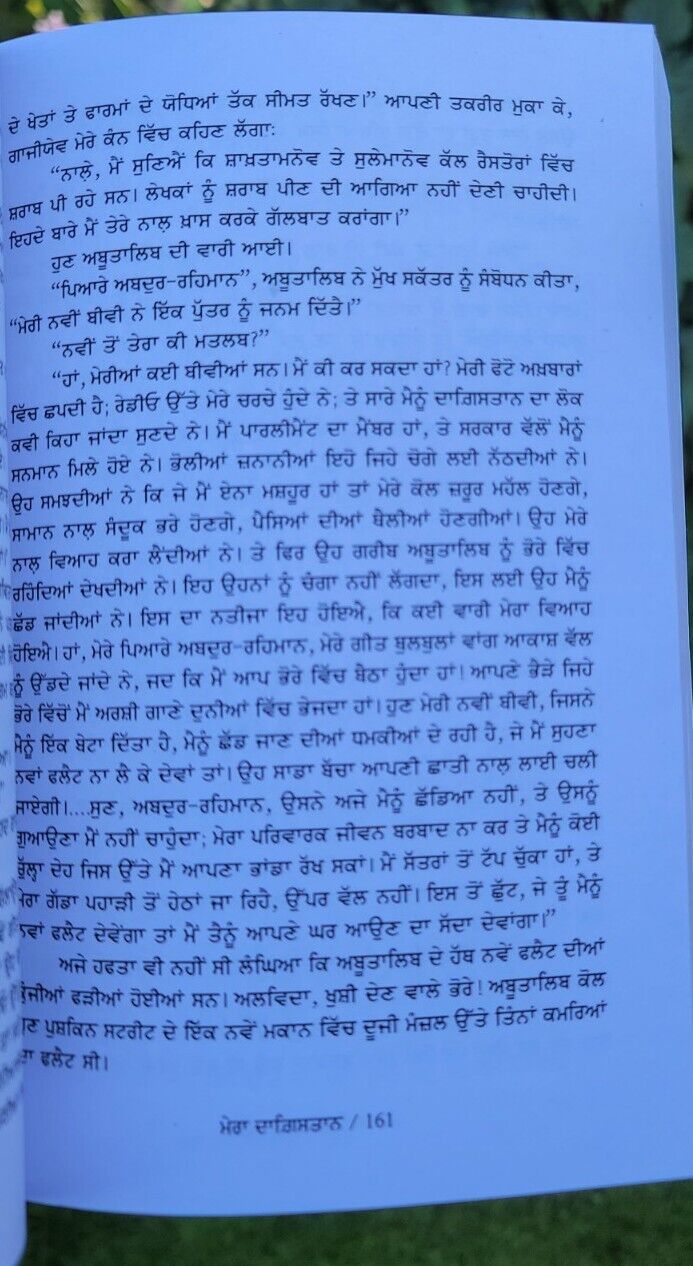 ਦੇ ਖੇਤਾਂ ਤੇ ਫਾਰਮਾਂ ਦੇ ਯੋਧਿਆਂ ਤੱਕ ਸੀਮਤ ਰੱਖਣ।” ਆਪਣੀ ਤਕਰੀਰ ਮੁਕਾ ਕੇ,
ਗਾਜੀਯੇਵ ਮੇਰੇ ਕੰਨ ਵਿੱਚ ਕਹਿਣ ਲੱਗਾ:
“ਨਾਲੇ, ਮੈਂ ਸੁਣਿਐਂ ਕਿ ਸ਼ਾਖ਼ਤਾਮਨੋਵ ਤੇ ਸੁਲੇਮਾਨੋਵ ਕੱਲ ਰੈਸਤੋਰਾਂ ਵਿੱਚ
ਸ਼ਰਾਬ ਪੀ ਰਹੇ ਸਨ। ਲੇਖਕਾਂ ਨੂੰ ਸ਼ਰਾਬ ਪੀਣ ਦੀ ਆਗਿਆ ਨਹੀਂ ਦੇਣੀ ਚਾਹੀਦੀ।
ਇਹਦੇ ਬਾਰੇ ਮੈਂ ਤੇਰੇ ਨਾਲ਼ ਖ਼ਾਸ ਕਰਕੇ ਗੱਲਬਾਤ ਕਰਾਂਗਾ।”
ਹੁਣ ਅਬੂਤਾਲਿਬ ਦੀ ਵਾਰੀ ਆਈ।
“ਪਿਆਰੇ ਅਬਦੁਰ-ਰਹਿਮਾਨ”, ਅਬੂਤਾਲਿਬ ਨੇ ਮੁੱਖ ਸਕੱਤਰ ਨੂੰ ਸੰਬੋਧਨ ਕੀਤਾ,
“ਮੇਰੀ ਨਵੀਂ ਬੀਵੀ ਨੇ ਇੱਕ ਪੁੱਤਰ ਨੂੰ ਜਨਮ ਦਿੱਤੈ।”
“ਨਵੀਂ ਤੋਂ ਤੇਰਾ ਕੀ ਮਤਲਬ?”
“ਹਾਂ, ਮੇਰੀਆਂ ਕਈ ਬੀਵੀਆਂ ਸਨ। ਮੈਂ ਕੀ ਕਰ ਸਕਦਾ ਹਾਂ? ਮੇਰੀ ਫੋਟੋ ਅਖ਼ਬਾਰਾਂ
ਵਿੱਚ ਛਪਦੀ ਹੈ; ਰੇਡੀਓ ਉੱਤੇ ਮੇਰੇ ਚਰਚੇ ਹੁੰਦੇ ਨੇ; ਤੇ ਸਾਰੇ ਮੈਨੂੰ ਦਾਗ਼ਿਸਤਾਨ ਦਾ ਲੋਕ
ਕਵੀ ਕਿਹਾ ਜਾਂਦਾ ਸੁਣਦੇ ਨੇ। ਮੈਂ ਪਾਰਲੀਮੈਂਟ ਦਾ ਮੈਂਬਰ ਹਾਂ, ਤੇ ਸਰਕਾਰ ਵੱਲੋਂ ਮੈਨੂੰ
ਸਨਮਾਨ ਮਿਲੇ ਹੋਏ ਨੇ। ਭੋਲੀਆਂ ਜ਼ਨਾਨੀਆਂ ਇਹੋ ਜਿਹੇ ਚੋਗੇ ਲਈ ਨੱਠਦੀਆਂ ਨੇ।
ਉਹ ਸਮਝਦੀਆਂ ਨੇ ਕਿ ਜੇ ਮੈਂ ਏਨਾ ਮਸ਼ਹੂਰ ਹਾਂ ਤਾਂ ਮੇਰੇ ਕੋਲ ਜ਼ਰੂਰ ਮਹੱਲ ਹੋਣਗੇ,
ਸਾਮਾਨ ਨਾਲ਼ ਸੰਦੂਕ ਭਰੇ ਹੋਣਗੇ, ਪੈਸਿਆਂ ਦੀਆਂ ਥੈਲੀਆਂ ਹੋਣਗੀਆਂ। ਉਹ ਮੇਰੇ
ਨਾਲ਼ ਵਿਆਹ ਕਰਾ ਲੈਂਦੀਆਂ ਨੇ। ਤੇ ਫਿਰ ਉਹ ਗਰੀਬ ਅਬੂਤਾਲਿਬ ਨੂੰ ਭੋਰੇ ਵਿੱਚ
ਰਹਿੰਦਿਆਂ ਦੇਖਦੀਆਂ ਨੇ। ਇਹ ਉਹਨਾਂ ਨੂੰ ਚੰਗਾ ਨਹੀਂ ਲੱਗਦਾ, ਇਸ ਲਈ ਉਹ ਮੈਨੂੰ
ਛੱਡ ਜਾਂਦੀਆਂ ਨੇ। ਇਸ ਦਾ ਨਤੀਜਾ ਇਹ ਹੋਇਐ, ਕਿ ਕਈ ਵਾਰੀ ਮੇਰਾ ਵਿਆਹ
ਹੋਇਐ। ਹਾਂ, ਮੇਰੇ ਪਿਆਰੇ ਅਬਦੁਰ-ਰਹਿਮਾਨ, ਮੇਰੇ ਗੀਤ ਬੁਲਬੁਲਾਂ ਵਾਂਗ ਆਕਾਸ਼ ਵੱਲ
ਨੂੰ ਉੱਡਦੇ ਜਾਂਦੇ ਨੇ, ਜਦ ਕਿ ਮੈਂ ਆਪ ਭੋਰੇ ਵਿੱਚ ਬੈਠਾ ਹੁੰਦਾ ਹਾਂ! ਆਪਣੇ ਭੈੜੇ ਜਿਹੇ
ਭੋਰੇ ਵਿੱਚੋਂ ਮੈਂ ਅਰਸ਼ੀ ਗਾਣੇ ਦੁਨੀਆਂ ਵਿੱਚ ਭੇਜਦਾ ਹਾਂ। ਹੁਣ ਮੇਰੀ ਨਵੀਂ ਬੀਵੀ, ਜਿਸਨੇ
ਮੈਨੂੰ ਇੱਕ ਬੇਟਾ ਦਿੱਤਾ ਹੈ, ਮੈਨੂੰ ਛੱਡ ਜਾਣ ਦੀਆਂ ਧਮਕੀਆਂ ਦੇ ਰਹੀ ਹੈ, ਜੇ ਮੈਂ ਸੁਹਣਾ
ਨਵਾਂ ਫਲੈਟ ਨਾ ਲੈ ਕੇ ਦੇਵਾਂ ਤਾਂ। ਉਹ ਸਾਡਾ ਬੱਚਾ ਆਪਣੀ ਛਾਤੀ ਨਾਲ਼ ਲਾਈ ਚਲੀ
ਜਾਏਗੀ।...ਸੁਣ, ਅਬਦੁਰ-ਰਹਿਮਾਨ, ਉਸਨੇ ਅਜੇ ਮੈਨੂੰ ਛੱਡਿਆ ਨਹੀਂ, ਤੇ ਉਸਨੂੰ
ਗੁਆਉਣਾ ਮੈਂ ਨਹੀਂ ਚਾਹੁੰਦਾ; ਮੇਰਾ ਪਰਿਵਾਰਕ ਜੀਵਨ ਬਰਬਾਦ ਨਾ ਕਰ ਤੇ ਮੈਨੂੰ ਕੋਈ
ਚੁੱਲ੍ਹਾ ਦੇਹ ਜਿਸ ਉੱਤੇ ਮੈਂ ਆਪਣਾ ਭਾਂਡਾ ਰੱਖ ਸਕਾਂ। ਮੈਂ ਸੱਤਰਾਂ ਤੋਂ ਟੱਪ ਚੁੱਕਾ ਹਾਂ, ਤੇ
ਮੇਰਾ ਗੱਡਾ ਪਹਾੜੀ ਤੋਂ ਹੇਠਾਂ ਜਾ ਰਿਹੈ, ਉੱਪਰ ਵੱਲ ਨਹੀਂ। ਇਸ ਤੋਂ ਛੁੱਟ, ਜੇ ਤੂੰ ਮੈਨੂੰ
ਨਵਾਂ ਫਲੈਟ ਦੇਵੇਂਗਾ ਤਾਂ ਮੈਂ ਤੈਨੂੰ ਆਪਣੇ ਘਰ ਆਉਣ ਦਾ ਸੱਦਾ ਦੇਵਾਂਗਾ।”
ਅਜੇ ਹਫਤਾ ਵੀ ਨਹੀਂ ਸੀ ਲੰਘਿਆ ਕਿ ਅਬੂਤਾਲਿਬ ਦੇ ਹੱਥ ਨਵੇਂ ਫਲੈਟ ਦੀਆਂ
ਕੁੰਜੀਆਂ ਫੜੀਆਂ ਹੋਈਆਂ ਸਨ। ਅਲਵਿਦਾ, ਖੁਸ਼ੀ ਦੇਣ ਵਾਲੇ ਭੋਰੇ! ਅਬੂਤਾਲਿਬ ਕੋਲ
ਪੁਸ਼ਕਿਨ ਸਟਰੀਟ ਦੇ ਇੱਕ ਨਵੇਂ ਮਕਾਨ ਵਿੱਚ ਦੂਜੀ ਮੰਜ਼ਲ ਉੱਤੇ ਤਿੰਨਾਂ ਕਮਰਿਆਂ
ਫਲੈਟ ਸੀ।
ਮੇਰਾ ਦਾਗ਼ਿਸਤਾਨ / 161